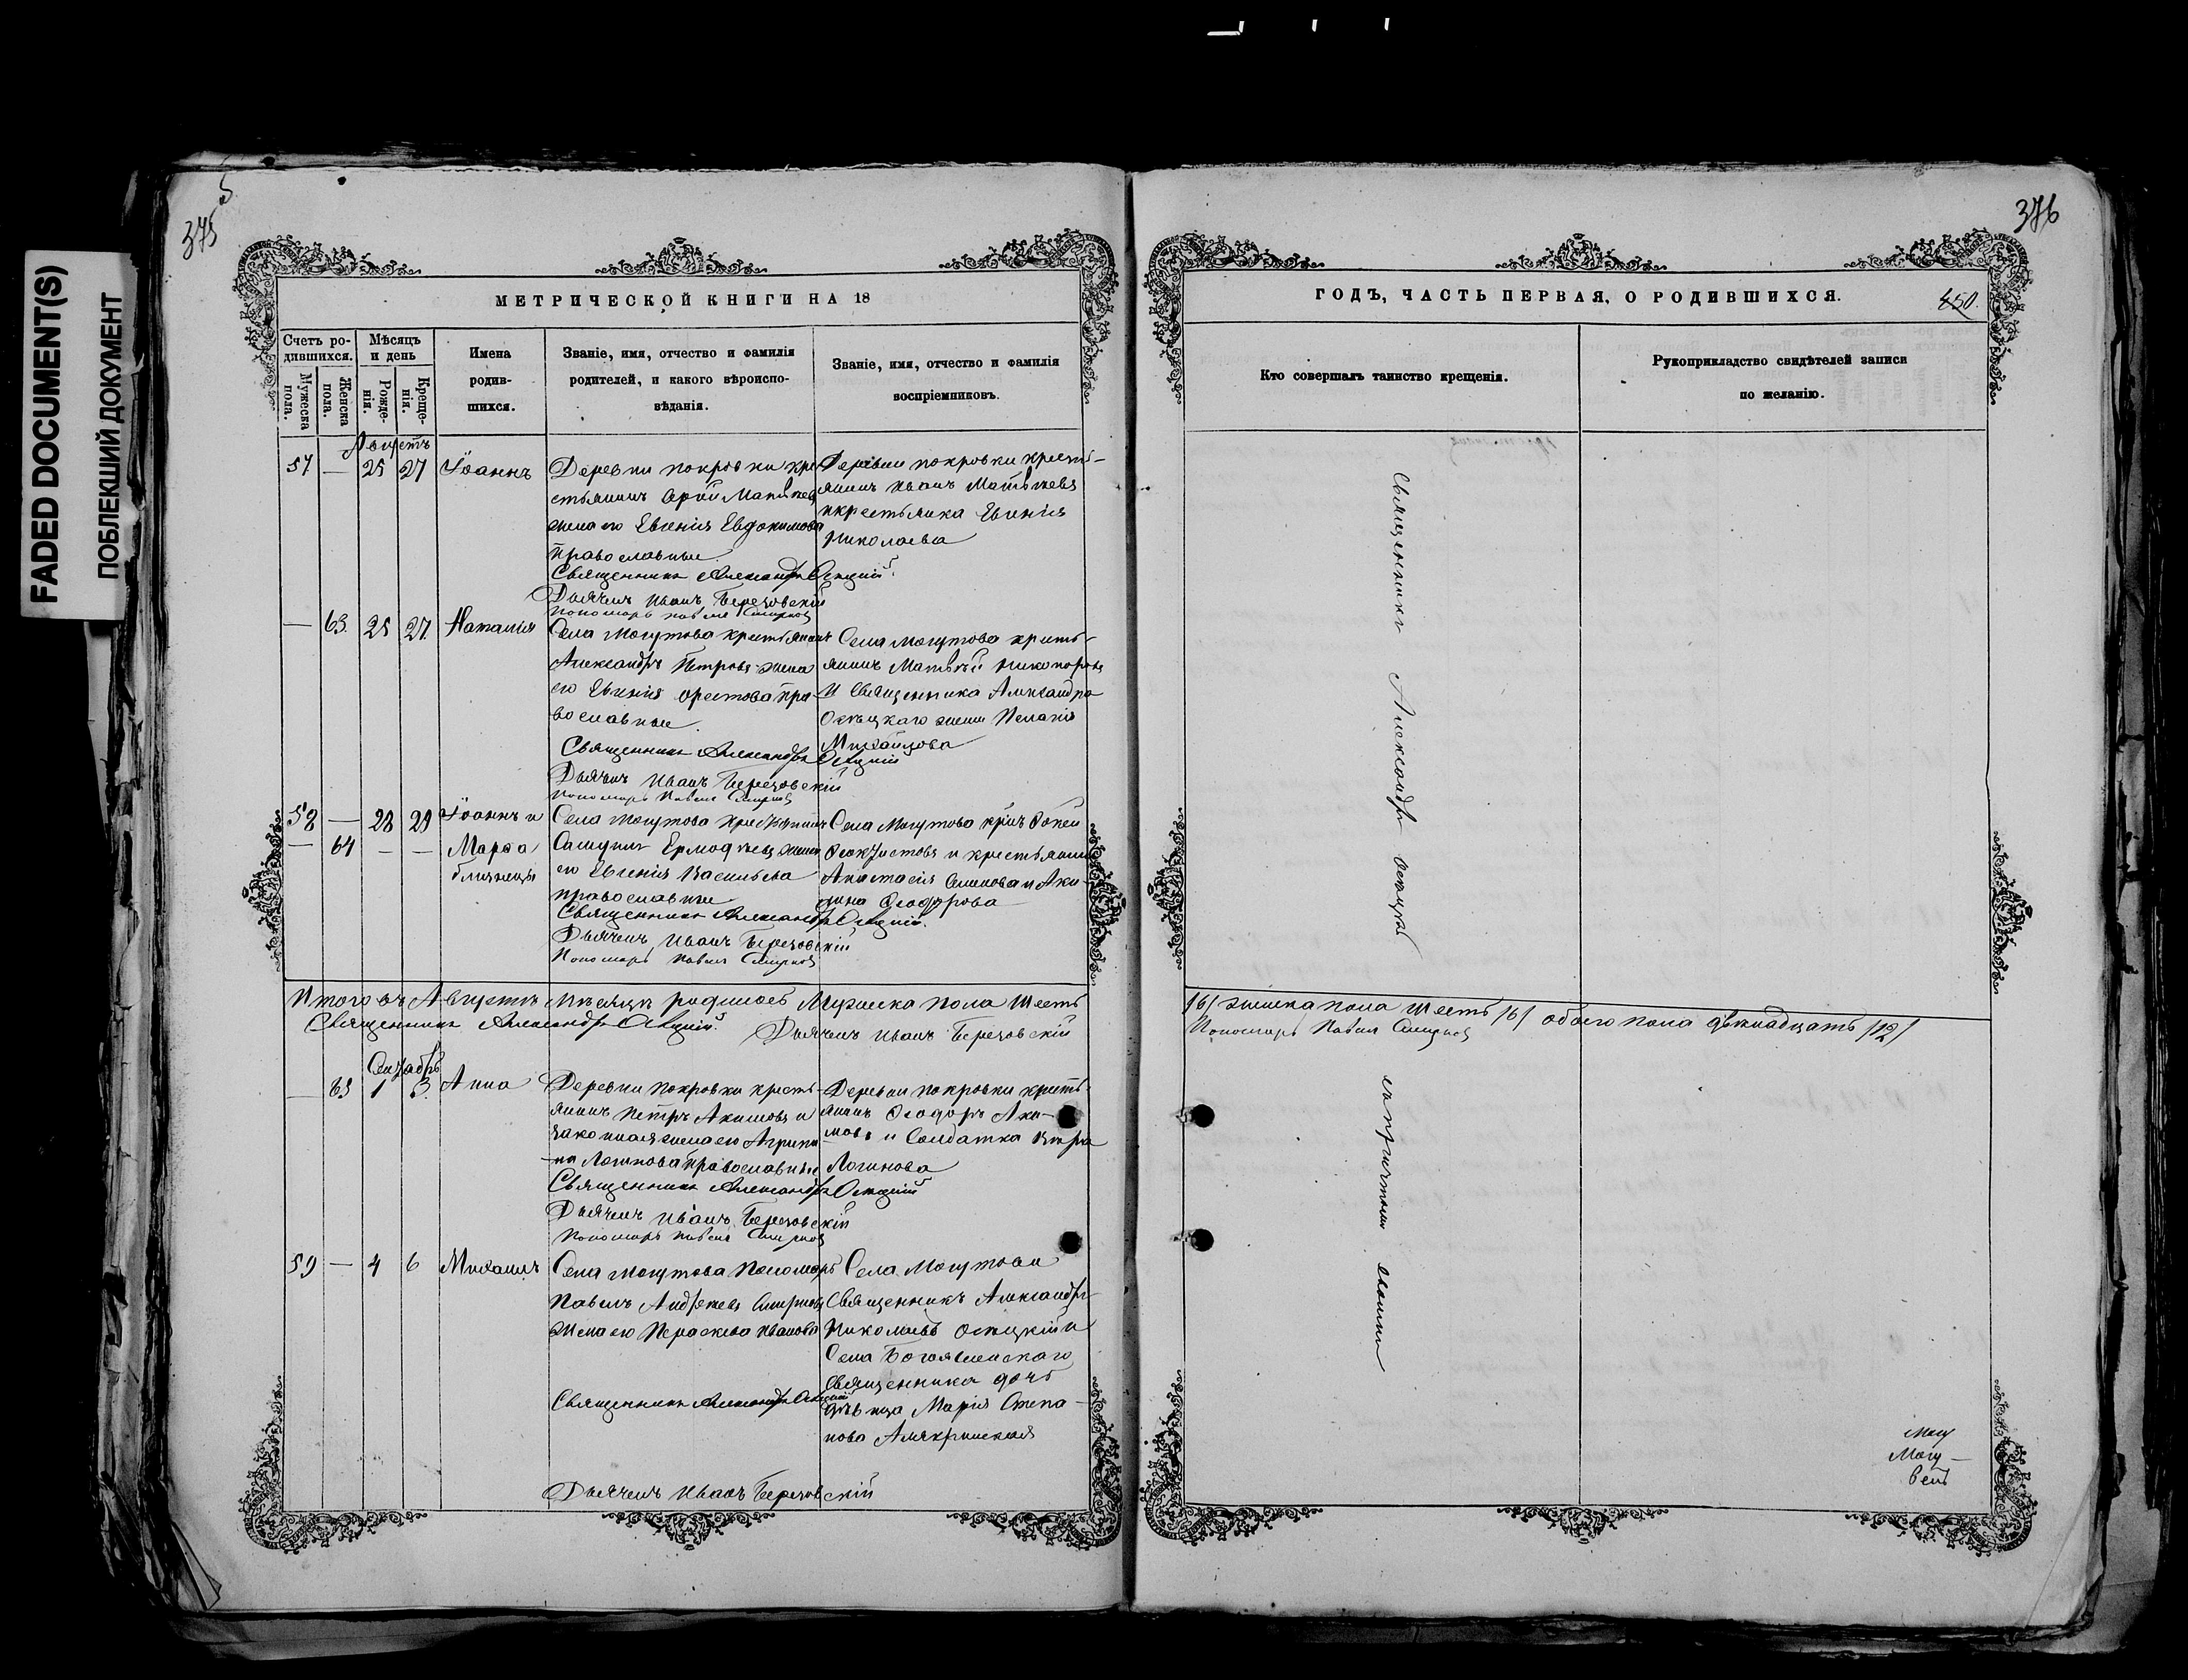 FADED DOCUMENT(S)
ПОБЛЕКШИЙ ДОКУМЕНТ
375
376
МЕТРИЧЕСКОЙ КНИГИ НА 18
Счетъ ро-
дившихся.
Мужеска
пола.
Женска
пола.
Мѣсяцъ
и день
Рожде-
нія.
Креще-
нія.
Имена
родив-
шихся.
Званіе, имя, отчество и фамилія
родителей, и какого вѣроиспо-
вѣданія.
Званіе, имя, отчество и фамилія
воспріемниковъ.
Августъ
57 — 25 27 Іоаннъ
Деревни Покровки кре-
стьянинъ
жена его Евгенія Евдокимова
православные
Деревни Покровки кресть-
янинъ Иванъ Матвѣевъ
и крестьянка Евгенія
Николаева
Священникъ Александръ Осецкій
Дьячекъ Иванъ Березовскій
Пономарь Павелъ Смирновъ
— 63. 25 27. Наталія
Села Могутова крестьянинъ
Александръ Петровъ жена
его Евгенія Орестова пра-
вославные
Села Могутова кресть-
янинъ Матвѣй Никоноровъ
и Священника Александра
Осецкаго жена Пелагія
Михайлова
Священникъ Александръ Осецкій
Дьячекъ Иванъ Березовскій
Пономарь Павелъ Смирновъ
58 — 28 29 Іоаннъ и
— 64 — — Марѳа
близнецы
Села Могутова крестьянинъ
жена
его Евгенія Васильева
православные
Села Могутова
и крестьянки
Анастасія Семенова и Аки-
лина Ѳеодорова
Священникъ Александръ Осецкій
Дьячекъ Иванъ Березовскій
Пономарь Павелъ Смирновъ
Итого въ Августѣ мѣсяцѣ родилось Мужеска пола шесть
Священникъ Александръ Осецкій Дьячекъ Иванъ Березовскій
Сентябрь
65 1 3. Анна
Деревни Покровки кресть-
янинъ Петръ Акимовъ и
законная жена его Агрипи-
на Логинова православные
Деревни Покровки кресть-
янинъ Ѳеодоръ Аки-
мовъ и Солдатка
Логинова
Священникъ Александръ Осецкій
Дьячекъ Иванъ Березовскій
Пономарь Павелъ Смирновъ
59 — 4 6 Михаилъ
Села Могутова Пономарь
Павелъ Андреевъ Смирновъ
жена его Параскева Иванова
Села Могутова
Священникъ Александръ
Николаевъ Осецкій и
Села Богоявленскаго
Священника дочь
дѣвица Марія Степа-
нова
Священникъ Александръ Осецкій
Дьячекъ Иванъ Березовскій
ГОДЪ, ЧАСТЬ ПЕРВАЯ, О РОДИВШИХСЯ.
850.
Кто совершалъ таинство крещенія.
Рукоприкладство свидѣтелей записи
по желанію.
Священникъ Александръ Осецкій
/6/ женска пола шесть /6/ обоего пола двѣнадцать /12/
Пономарь Павелъ Смирновъ
съ причтомъ своимъ